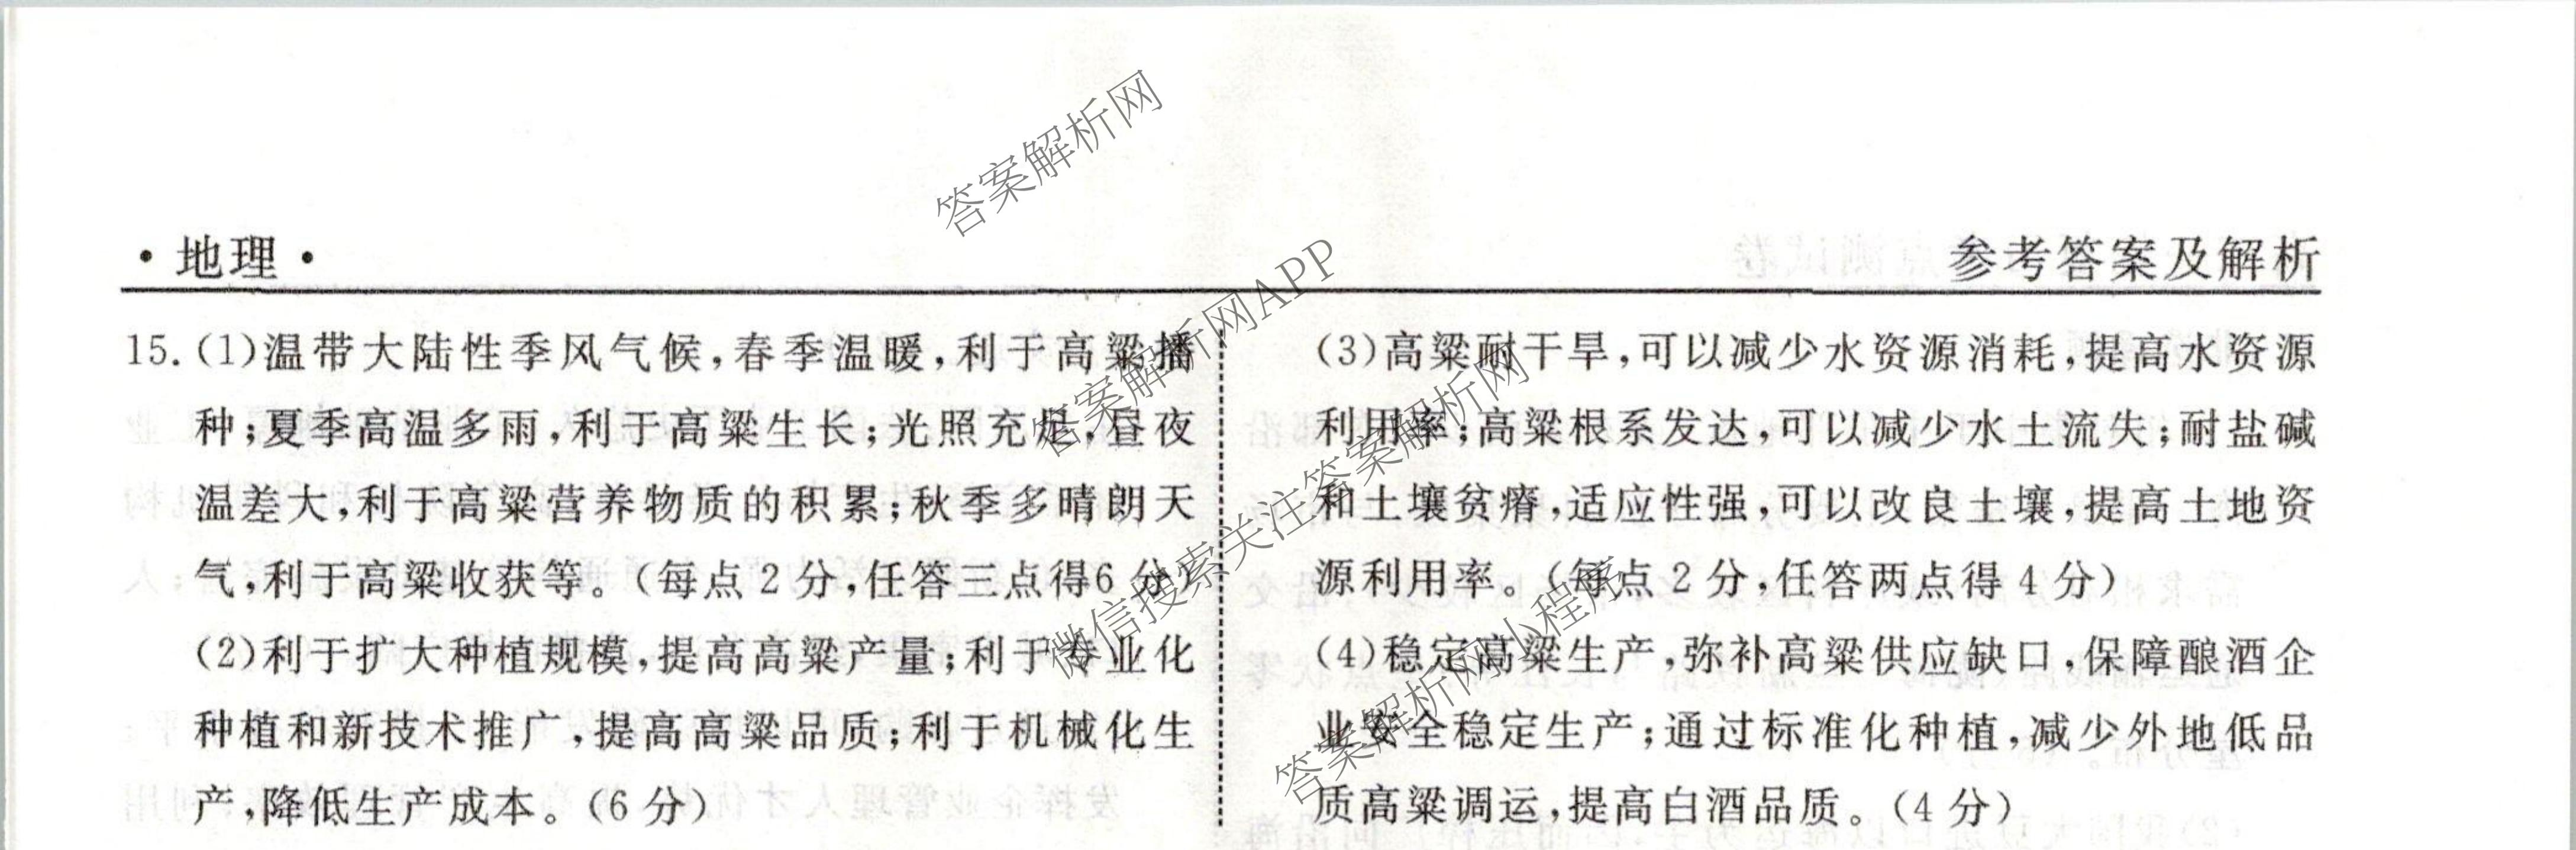 ·地理·
参考答案及解析
15.(1)温带大陆性季风气候,春季温暖,利于高粱播
种;夏季高温多雨,利于高粱生长;光照充足,昼夜
温差大,利于高粱营养物质的积累;秋季多晴朗天
气,利于高粱收获等。(每点2分,任答三点得6分)
(2)利于扩大种植规模,提高高粱产量;利于专业化
种植和新技术推广,提高高粱品质;利于机械化生
产,降低生产成本。(6分)
(3)高粱耐干旱,可以减少水资源消耗,提高水资源
利用率;高粱根系发达,可以减少水土流失;耐盐碱
和土壤贫瘠,适应性强,可以改良土壤,提高土地资
源利用率。(每点2分,任答两点得4分)
(4)稳定高粱生产,弥补高粱供应缺口,保障酿酒企
业安全稳定生产;通过标准化种植,减少外地低品
质高粱调运,提高白酒品质。(4分)
答案解析网
答案解析网APP
微信搜索关注答案解析网
答案解析网小程序